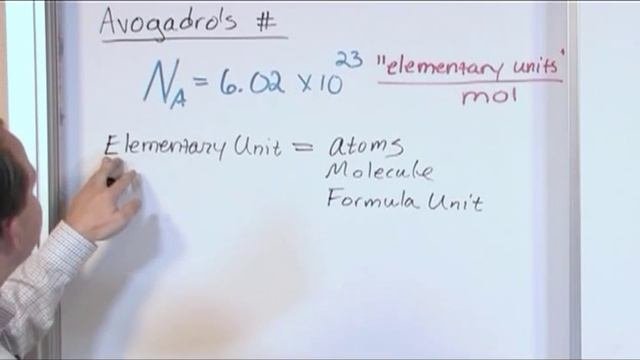 Avogadro's #
N_A = 6.02 x 10^23 "elementary units" / mol
Elementary Unit = atoms
Molecule
Formula Unit